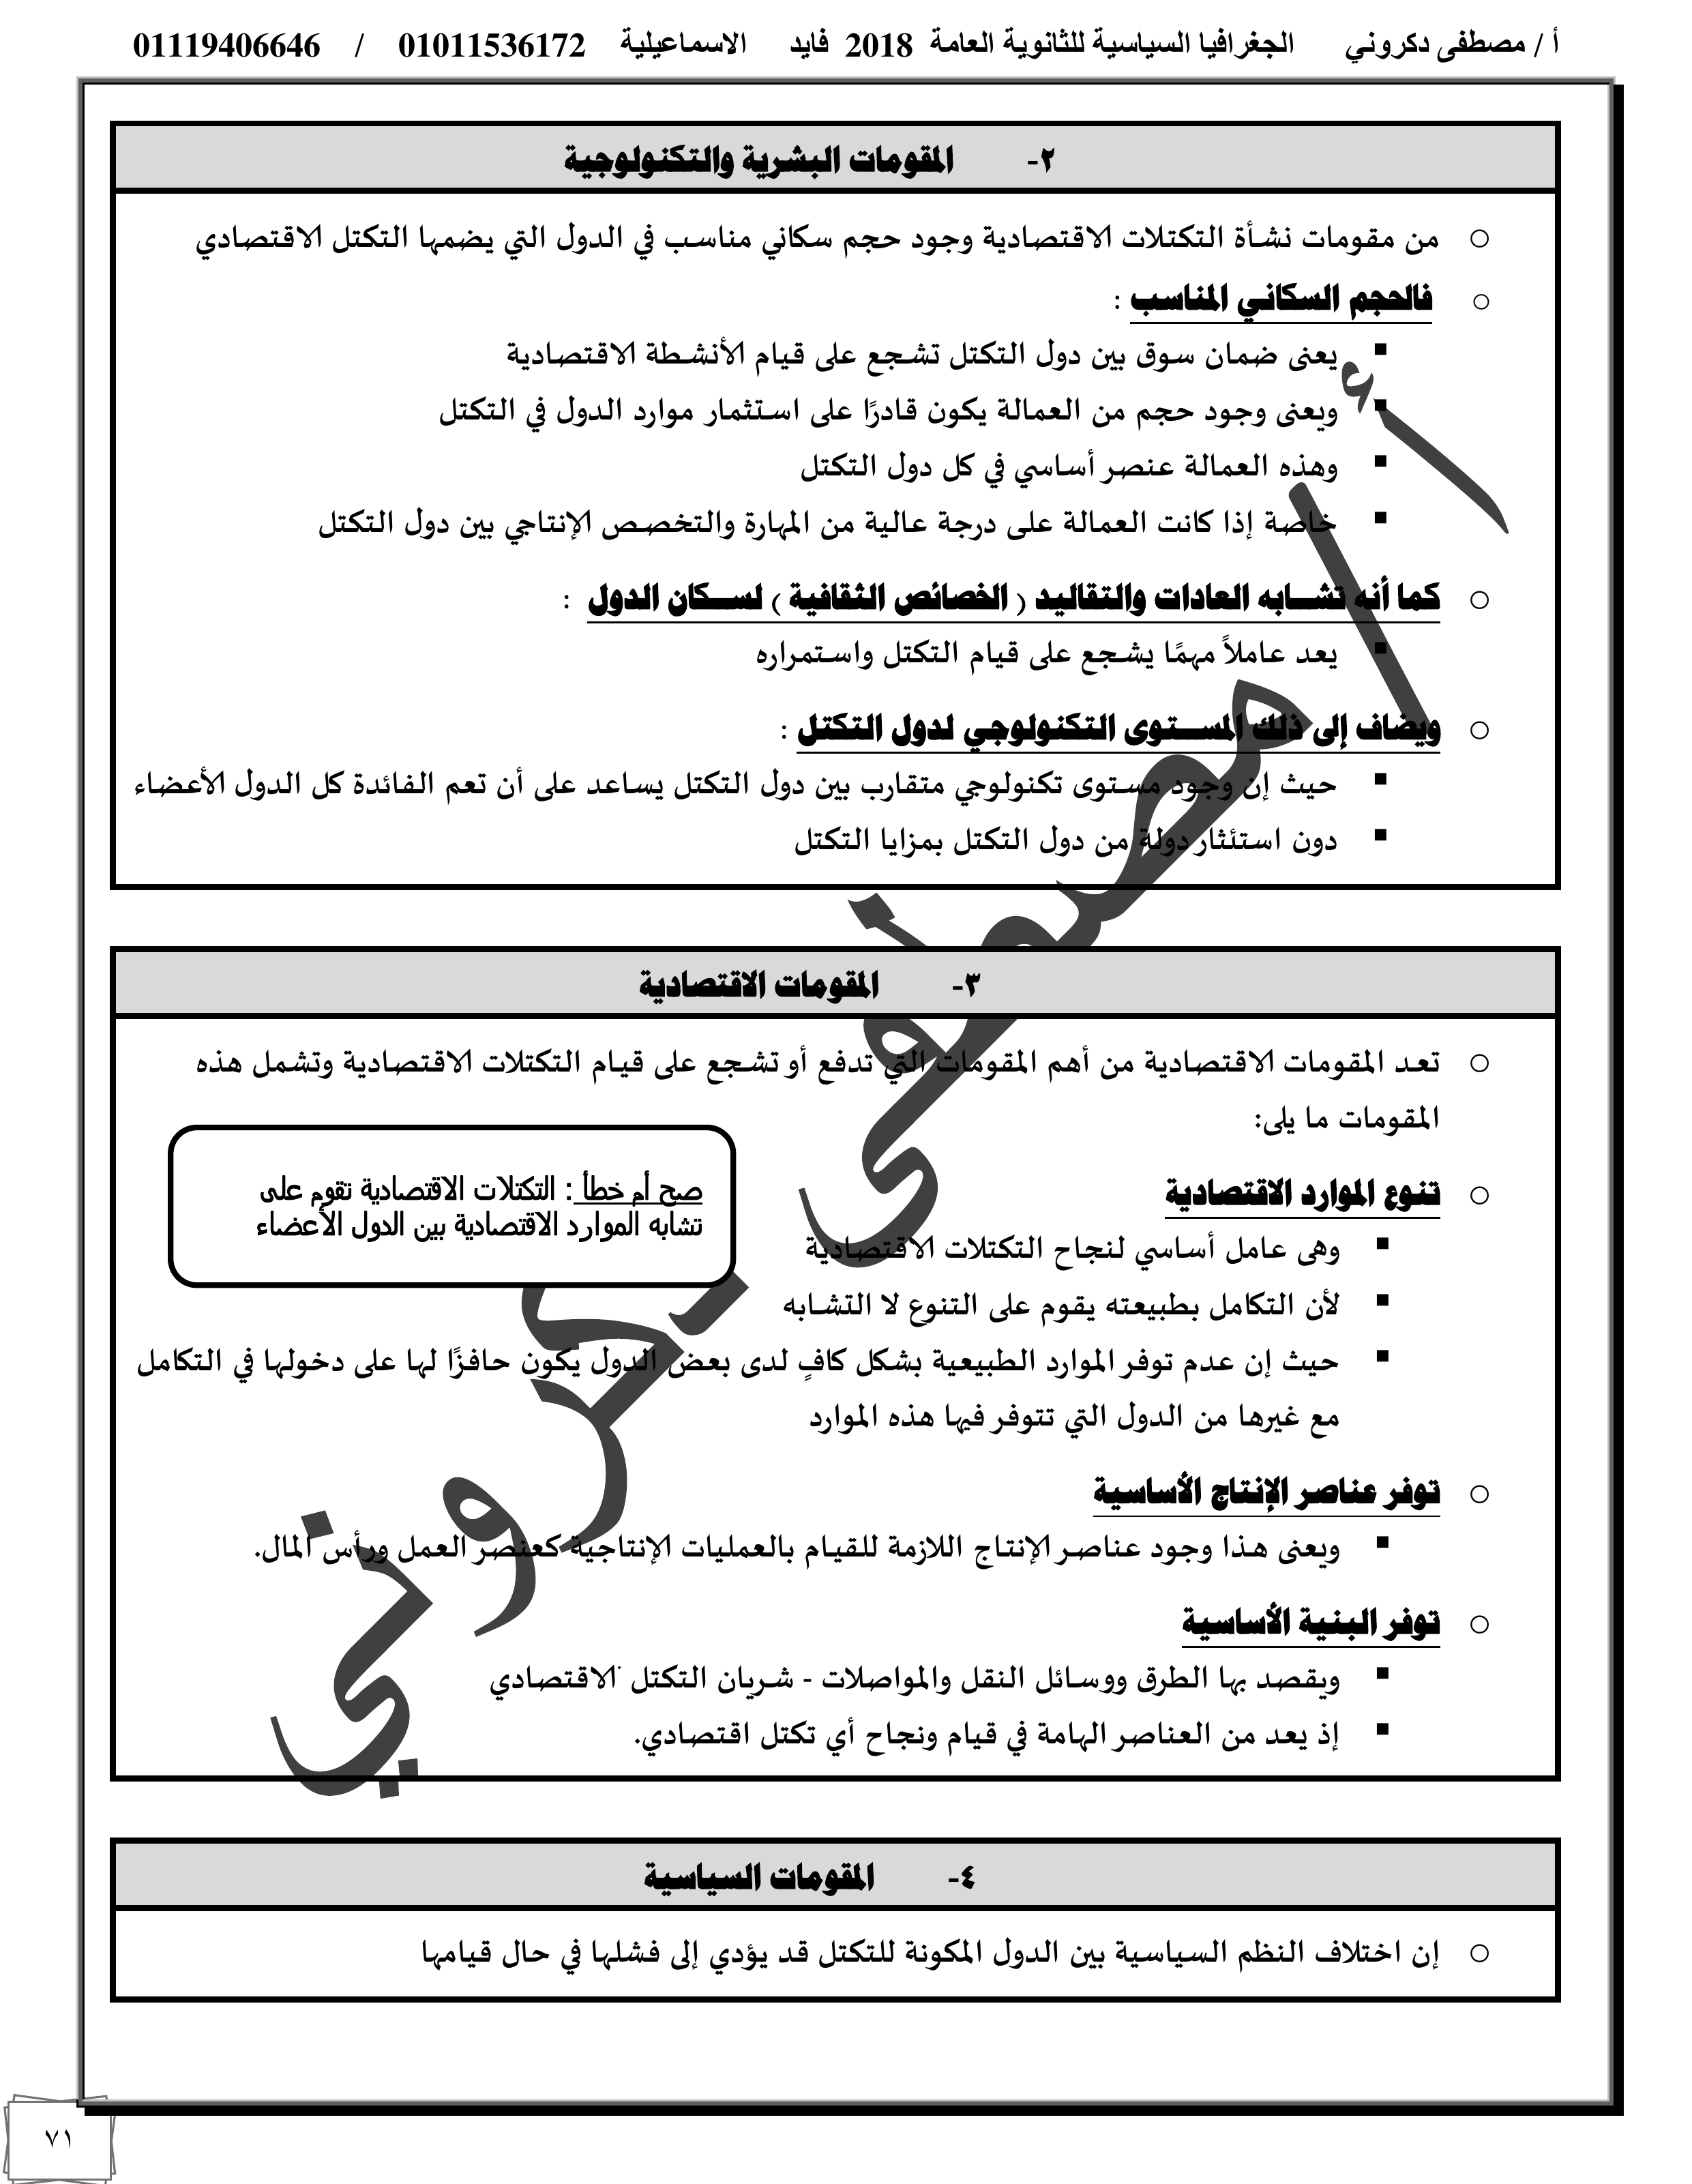 أ / مصطفى دكروني الجغرافيا السياسية للثانوية العامة 2018 فايد الاسماعيلية 01011536172 / 01119406646
٢- المقومات البشرية والتكنولوجية
○ من مقومات نشأة التكتلات الاقتصادية وجود حجم سكاني مناسب في الدول التي يضمها التكتل الاقتصادي
○ فالحجم السكاني المناسب :
▪ يعنى ضمان سوق بين دول التكتل تشجع على قيام الأنشطة الاقتصادية
▪ ويعنى وجود حجم من العمالة يكون قادرًا على استثمار موارد الدول في التكتل
▪ وهذه العمالة عنصر أساسي في كل دول التكتل
▪ خاصة إذا كانت العمالة على درجة عالية من المهارة والتخصص الإنتاجي بين دول التكتل
○ كما أنه تشــابه العادات والتقاليد ( الخصائص الثقافية ) لســكان الدول :
▪ يعد عاملاً مهمًا يشجع على قيام التكتل واستمراره
○ ويضاف إلى ذلك المســتوى التكنولوجي لدول التكتل :
▪ حيث إن وجود مستوى تكنولوجي متقارب بين دول التكتل يساعد على أن تعم الفائدة كل الدول الأعضاء
▪ دون استئثار دولة من دول التكتل بمزايا التكتل
٣- المقومات الاقتصادية
○ تعد المقومات الاقتصادية من أهم المقومات التي تدفع أو تشجع على قيام التكتلات الاقتصادية وتشمل هذه
المقومات ما يلى:
○ تنوع الموارد الاقتصادية
صح أم خطأ : التكتلات الاقتصادية تقوم على
تشابه الموارد الاقتصادية بين الدول الأعضاء
▪ وهى عامل أساسي لنجاح التكتلات الاقتصادية
▪ لأن التكامل بطبيعته يقوم على التنوع لا التشابه
▪ حيث إن عدم توفر الموارد الطبيعية بشكل كافٍ لدى بعض الدول يكون حافزًا لها على دخولها في التكامل
مع غيرها من الدول التي تتوفر فيها هذه الموارد
○ توفر عناصر الإنتاج الأساسية
▪ ويعنى هذا وجود عناصر الإنتاج اللازمة للقيام بالعمليات الإنتاجية كعنصر العمل ورأس المال.
○ توفر البنية الأساسية
▪ ويقصد بها الطرق ووسائل النقل والمواصلات - شريان التكتل الاقتصادي
▪ إذ يعد من العناصر الهامة في قيام ونجاح أي تكتل اقتصادي.
٤- المقومات السياسية
○ إن اختلاف النظم السياسية بين الدول المكونة للتكتل قد يؤدي إلى فشلها في حال قيامها
٧١
أ / مصطفى دكروني